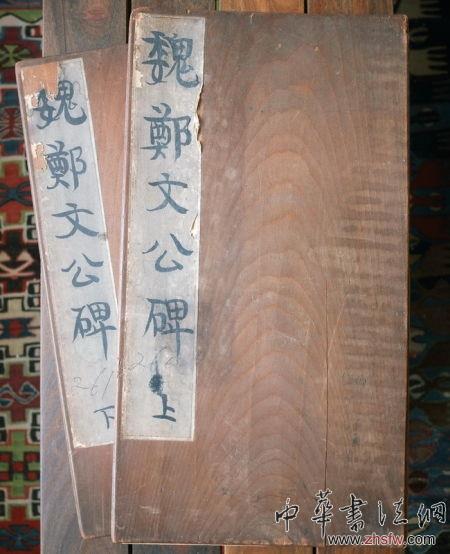 魏鄭文公碑
上
魏鄭文公碑
下
261
中华书法网
www.zhsfw.com